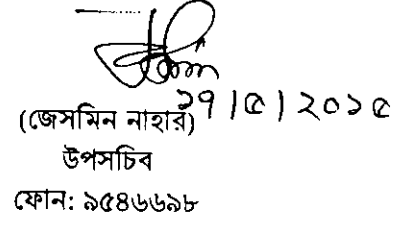 (জেসমিন নাহার) ১৭|৫|২০১৫
উপসচিব
ফোন: ৯৫৪৬৬৯৮